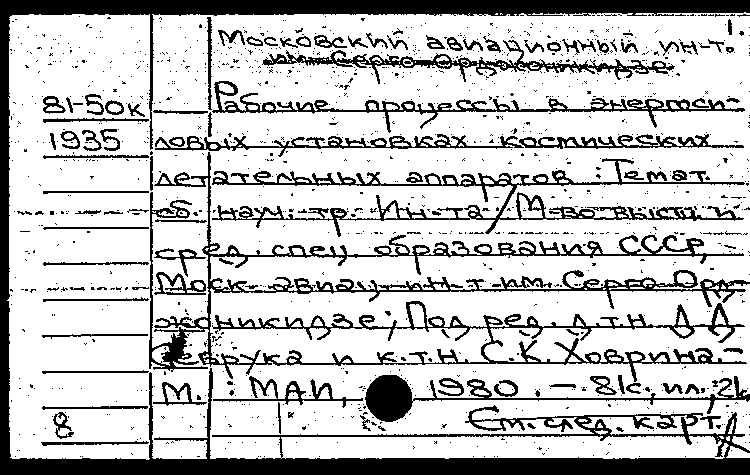 1.
Московский авиационный ин-т.
им. Серго Орджоникидзе.
81-50к Рабочие процессы в энергоси-
1935 ловых установках космических
летательных аппаратов : Темат.
сб. науч. тр. Ин-та / М-во высш. и
сред. спец. образования СССР,
Моск. авиац. ин-т им. Серго Орд-
жоникидзе; Под ред. д.т.н. Д.Д.
Севрука и к.т.н. С.К. Ховрина. –
М. : МАИ, 1980. – 81с.; ил.; 21
8 См. след. карт.